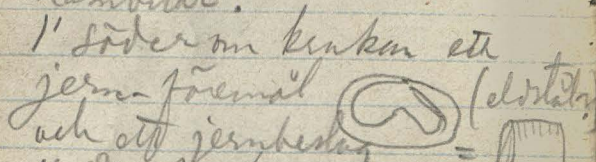 1' söder om krukan ett
jern-föremål (eldstål?)
och ett jernbeslag =